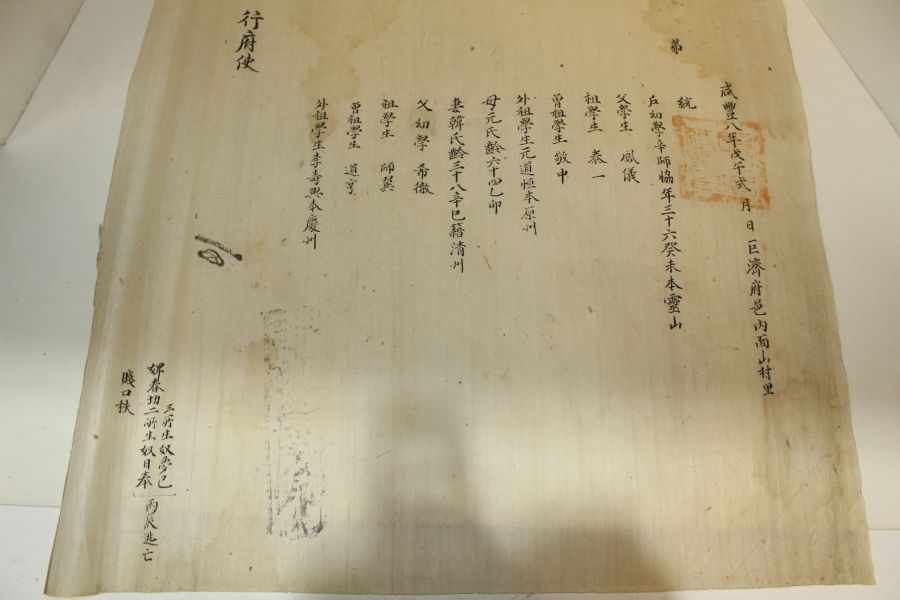 咸豐八年戊午式 月 日巨濟府邑內面山村里
第
統
戶幼學辛師協年三十六癸未本靈山
父學生 鳳儀
祖學生 泰一
曾祖學生 敬中
外祖學生元道恒本原州
母元氏齡六十四乙卯
妻韓氏齡三十八辛巳籍淸州
父幼學 希徵
祖學生 師冀
曾祖學生 道亨
外祖學生李壽 本慶州
行府使
三所生奴夢已
婢春切二所生奴日奉 丙辰逃亡
賤口秩